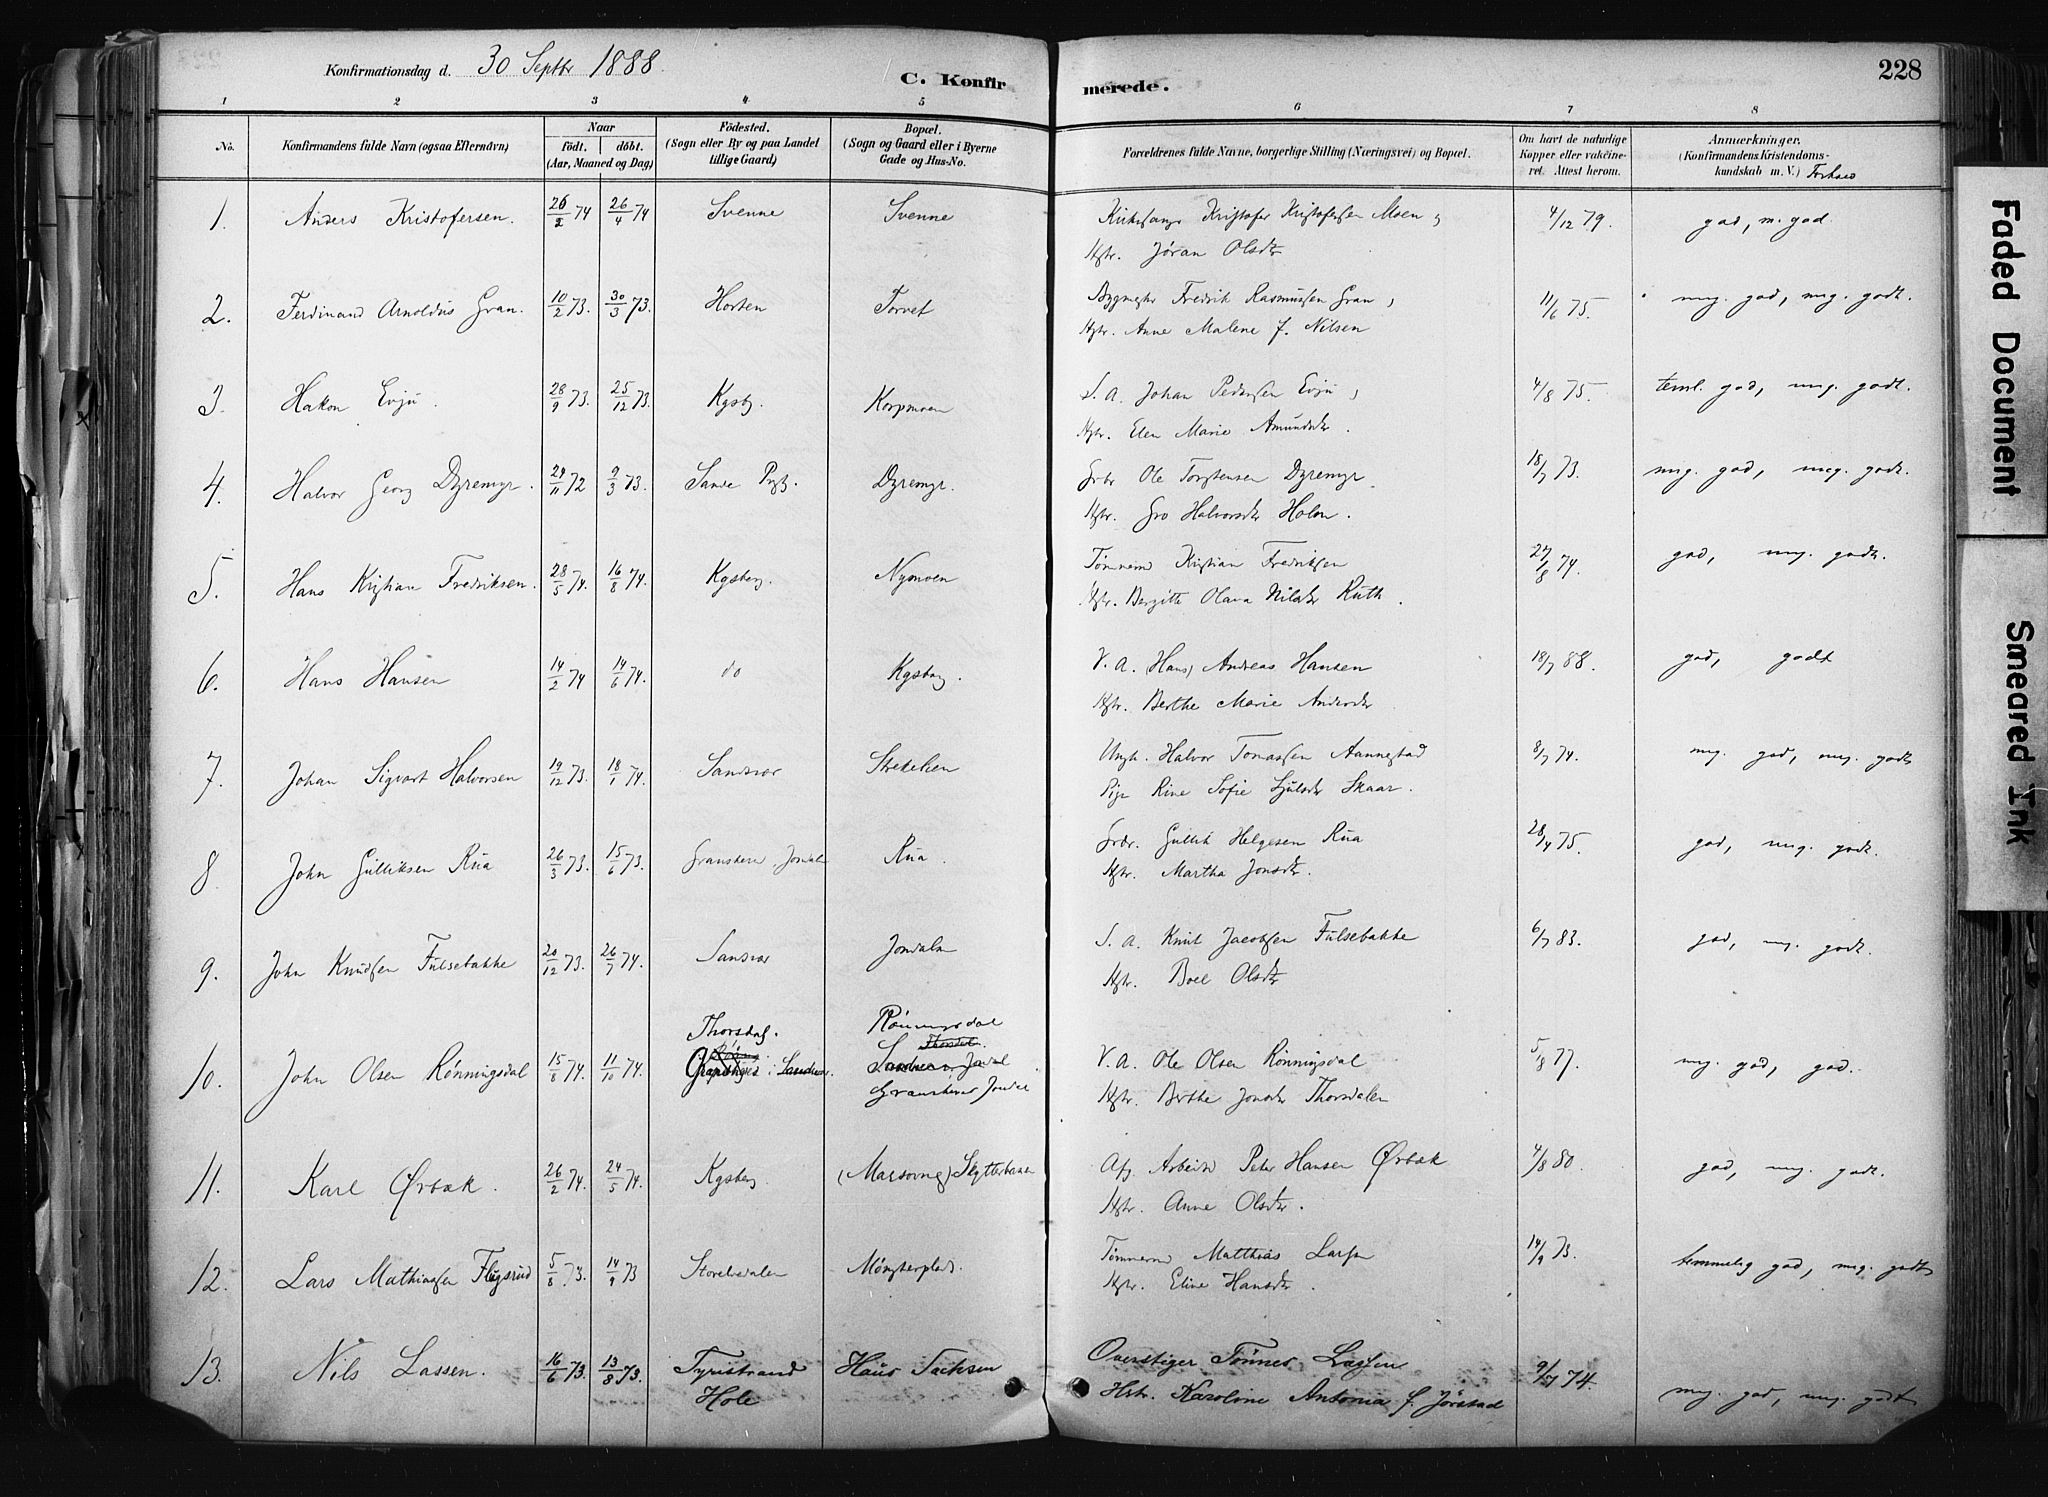 Konfirmationsdag d. 30 Septbr 1888.
C. Konfirmerede.
228
1 2 3 4 5 6 7 8
No. Konfirmandens fulde Navn (ogsaa Efternavn) Naar født. døbt. (Aar, Maaned og Dag) Födested. (Sogn eller By og paa Landet tillige Gaard) Bopæl. (Sogn og Gaard eller i Byerne Gade og Hus-No.) Forældrenes fulde Navne, borgerlige Stilling (Næringsvei) og Bopæl. Om havt de naturlige Kopper eller vakcineret. Attest herom. Anmærkninger. (Konfirmandens Kristendomskundskab m. V.)
1. Anders Kristofersen. 26/2 74 26/4 74 Svenne Svenne Kirkesanger Kristofer Kristofersen Moen 4/12 79. god, m. god
Hstr. Jøran Olsdtr
2. Ferdinand Arnoldus Gran. 10/2 73. 30/3 73. Horten Torvet Fredrik Rasmussen Gran, 11/6 75. meg. god, meg. godt.
Hstr. Anne Malene f. Nilsen
3. Hakon Evju. 28/9 73. 25/12 73. Kgsbg. Korpmoen S. A. Johan Pedersen Evju, 4/8 75. teml. god, meg. godt.
Hstr. Elen Marie Amundsdtr.
4. Halvor Georg Dyremyr. 29/11 72 9/3 73. Sande Prgj. Dyremyr. Grbr Ole Torstensen Dyremyr 18/7 73. meg. god, meg. godt.
Hstr. Gro Halvorsdtr Holm.
5. Hans Kristian Fredriksen. 28/5 74. 16/8 74. Kgsberg. Nymoen Tømmermd Kristian Fredriksen 27/8 74. god, meg. godt.
Hstr. Bergitte Olava Nilsdtr Ruth.
6. Hans Hansen 14/2 74 14/6 74. do Kgsberg. V. A. (Hans) Andreas Hansen 18/7 88. god, godt
Hstr. Berthe Marie Andersdtr
7. Johan Sigvart Halvorsen 19/12 73. 18/1 74. Sandsvær Stekelien Ungk. Halvor Tomassen Aannestad 8/7 74. meg. god, meg. godt
Pige Rine Sofie Hjulsdtr Skaar.
8. John Gulliksen Rua 26/3 73. 15/6 73. Gransherred, Jondal Rua. Grbr. Gullik Helgesen Rua 28/4 75. god, meg. godt.
Hstr. Martha Jonsdtr.
9. John Knudsen Fulsebakke 20/12 73. 26/7 74. Sansvær Jondalen S. A. Knut Jacobsen Fulsebakke 6/7 83. god, meg. godt.
Hstr. Boel Olsdtr
10. John Olsen Rønningsdal 15/8 74. 11/10 74. Thorsdal. Rønningsdal Gransherred Jondal V. A. Ole Olsen Rønningsdal 5/8 77. meg. god, god.
Hstr. Berthe Jonsdtr Thorsdalen
11. Karl Ørbæk. 26/2 74. 24/5 74. Kgsberg. Skytterbakken Arbeid Peter Hansen Ørbæk 4/8 80. god, meg. godt.
Hstr. Anne Olsdtr.
12. Lars Mathiassen Flugsrud 5/8 73. 14/9 73 Storelvdalen Møngterplads. Tømmermd Matthias Larsen 14/9 73. temmelig god, meg. godt
Hstr. Eline Hansdtr.
13. Nils Lassen. 16/6 73 13/8 73. Tyristrand Hole Haus Sachsen Overstiger Tønnes Lassen 9/7 74. meg. god, meg. godt
Hstr. Karoline Antonia f. Jørstad
Faded Document
Smeared Ink